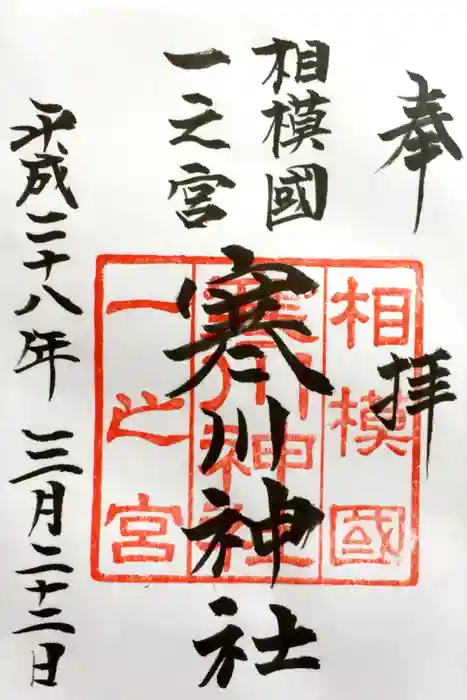 奉拝
相模國
一之宮
寒川神社
平成二十八年三月二十二日
相模國
寒川神社
一之宮